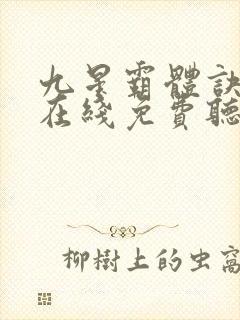 九星霸體訣
在綫免費聽
柳樹上的虫窩